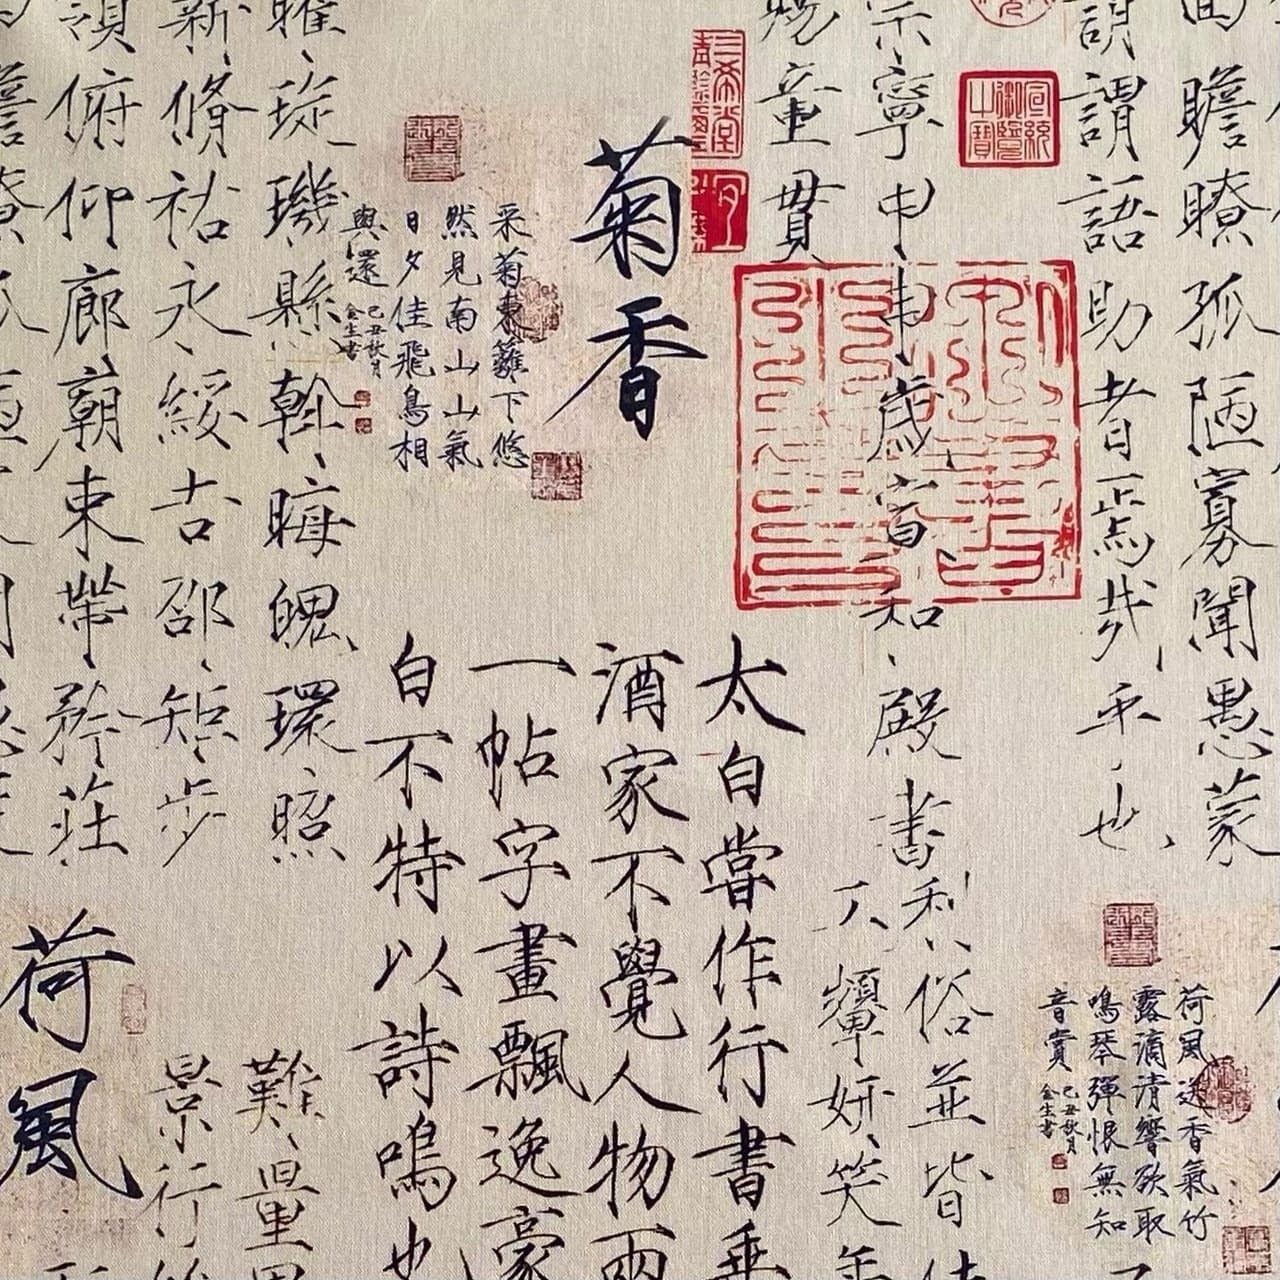 瞻瞭孤陋寡聞愚蒙
誚謂語助者焉哉乎也
宣統御覽之寶
寧甲申歲宣和殿書
賜童貫
三希堂精鑑璽
菊香
采菊東籬下悠
然見南山山氣
日夕佳飛鳥相
與還
己丑秋月
金生書
曜旋璣懸斡晦魄環照
薪脩祜永綏吉邵矩步
領俯仰廊廟束帶矜莊
荷風送香氣竹
露滴清響欲取
鳴琴彈恨無知
音賞
己丑秋月
金生書
利俗並皆佳
妍笑年
太白嘗作行書乘
酒家不覺人物兩
一帖字畫飄逸豪
白不特以詩鳴也
難量墨
景行維
荷風